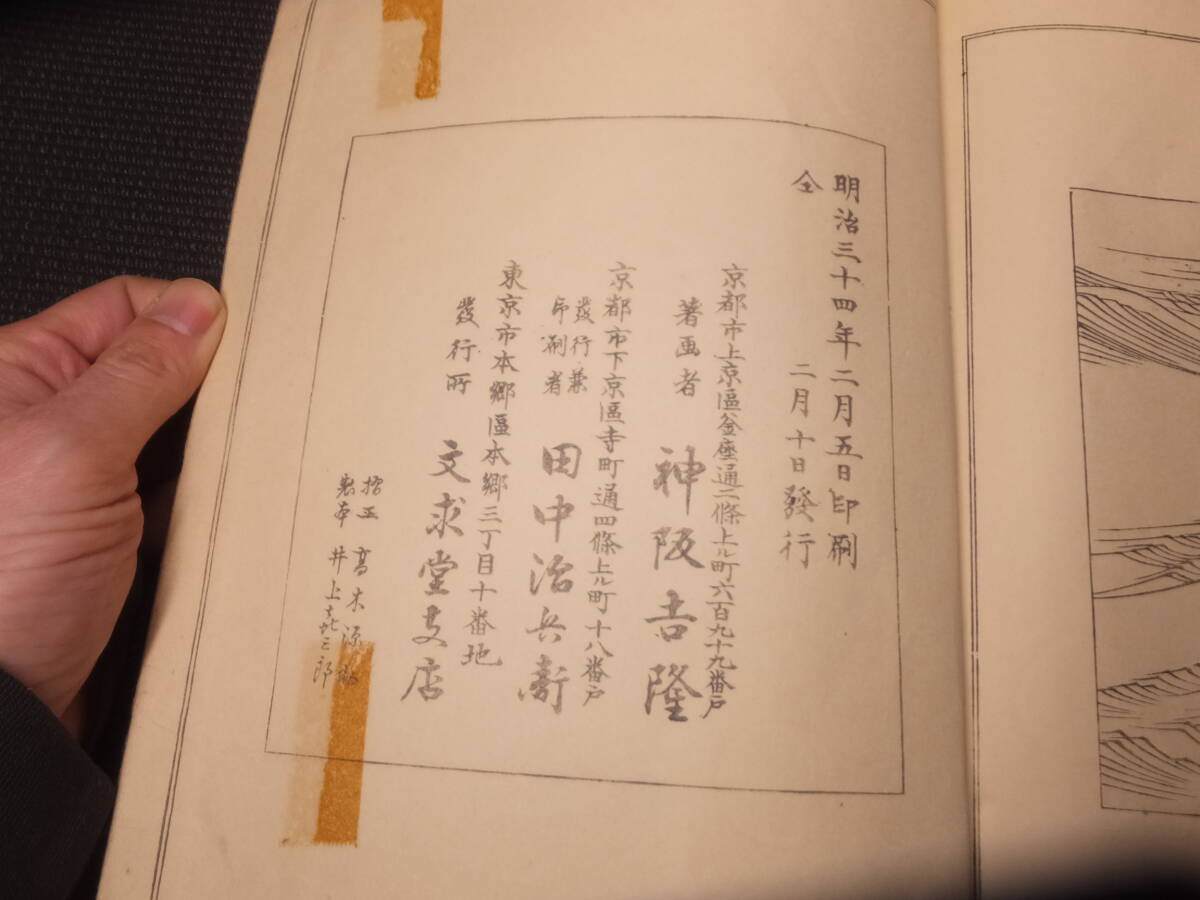 明治三十四年二月五日印刷
仝 二月十日發行
京都市上京區釜座通二條上ル町六百九十九番戸
著画者 神阪吉隆
京都市下京區寺町通四條上ル町十八番戸
發行兼
印刷者 田中治兵衞
東京市本郷區本郷三丁目十番地
發行所 文求堂支店
摺工 高木源
製本 井上喜三郎